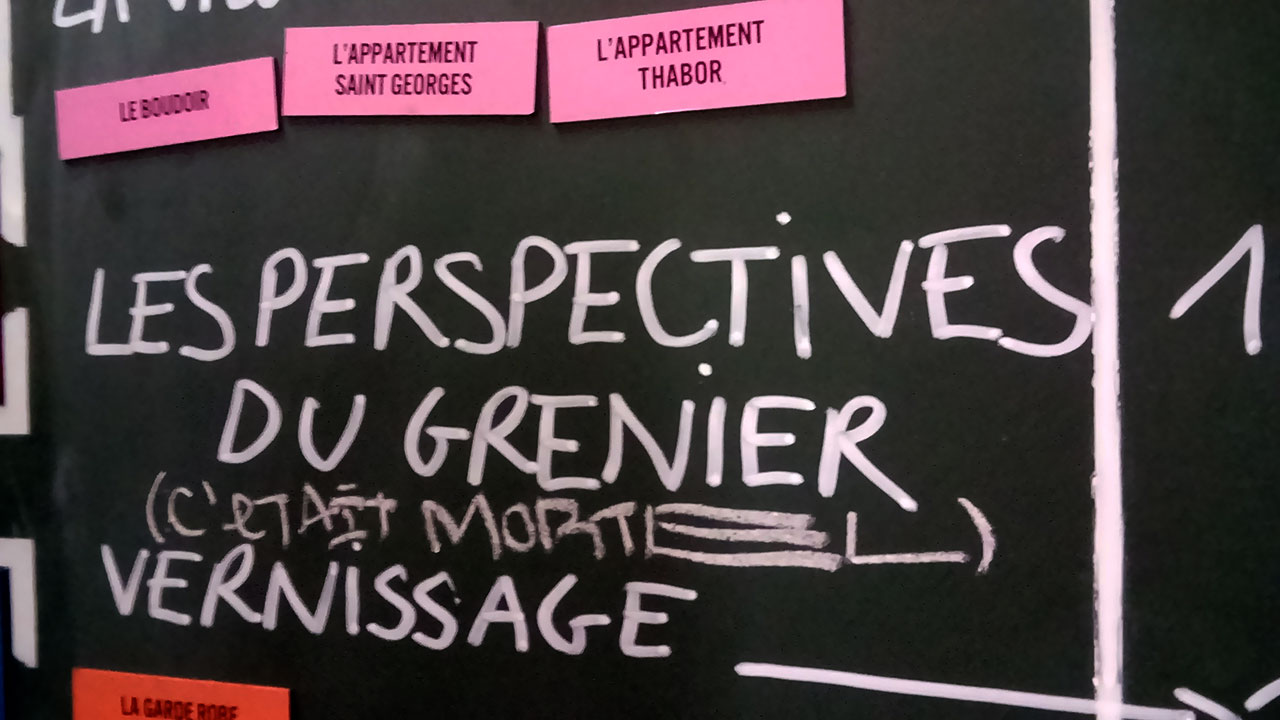 LE BOUDOIR
L'APPARTEMENT
SAINT GEORGES
L'APPARTEMENT
THABOR
LES PERSPECTIVES
DU GRENIER
(C'ETAIT MORTEL)
VERNISSAGE
LA GARDE ROBE
1